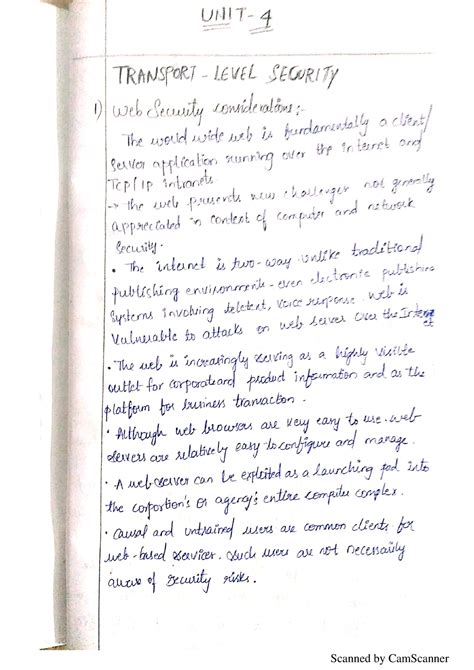 UNIT-4
TRANSPORT-LEVEL SECURITY
1) Web Security considerations:-
The world wide web is fundamentally a client/
server application running over the internet and
TCP/IP intranets.
→ The web presents new challenges not generally
appreciated in context of computer and network
security.
• The internet is two-way. unlike traditional
publishing environments-even electronic publishing
systems involving teletext, voice response. web is
Vulnerable to attacks on web server over the Internet
• The web is increasingly serving as a highly visible
outlet for corporate and product information and as the
platform for business transaction.
• Although web browsers are very easy to use. web
servers are relatively easy to configure and manage.
• A web server can be exploited as a launching pad into
the corportion's or agency's entire computer complex.
• Causal and untrained users are common clients for
web-based services. Such users are not necessarily
aware of security risks.
Scanned by CamScanner